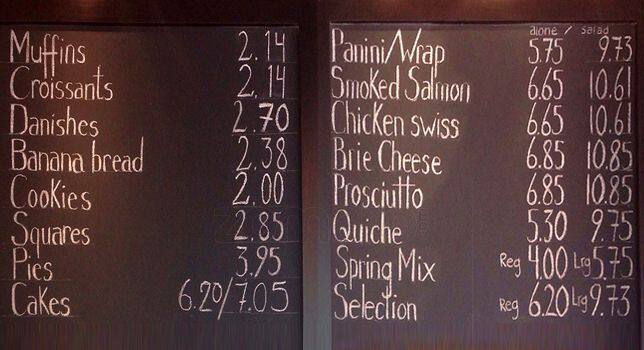 Muffins 2.14
Croissants 2.14
Danishes 2.70
Banana bread 2.38
Cookies 2.00
Squares 2.85
Pies 3.95
Cakes 6.20/7.05
alone / salad
Panini/Wrap 5.75 9.73
Smoked Salmon 6.65 10.61
Chicken swiss 6.65 10.61
Brie Cheese 6.85 10.85
Prosciutto 6.85 10.85
Quiche 5.30 9.75
Spring Mix Reg 4.00 Lrg 5.75
Selection Reg 6.20 Lrg 9.73